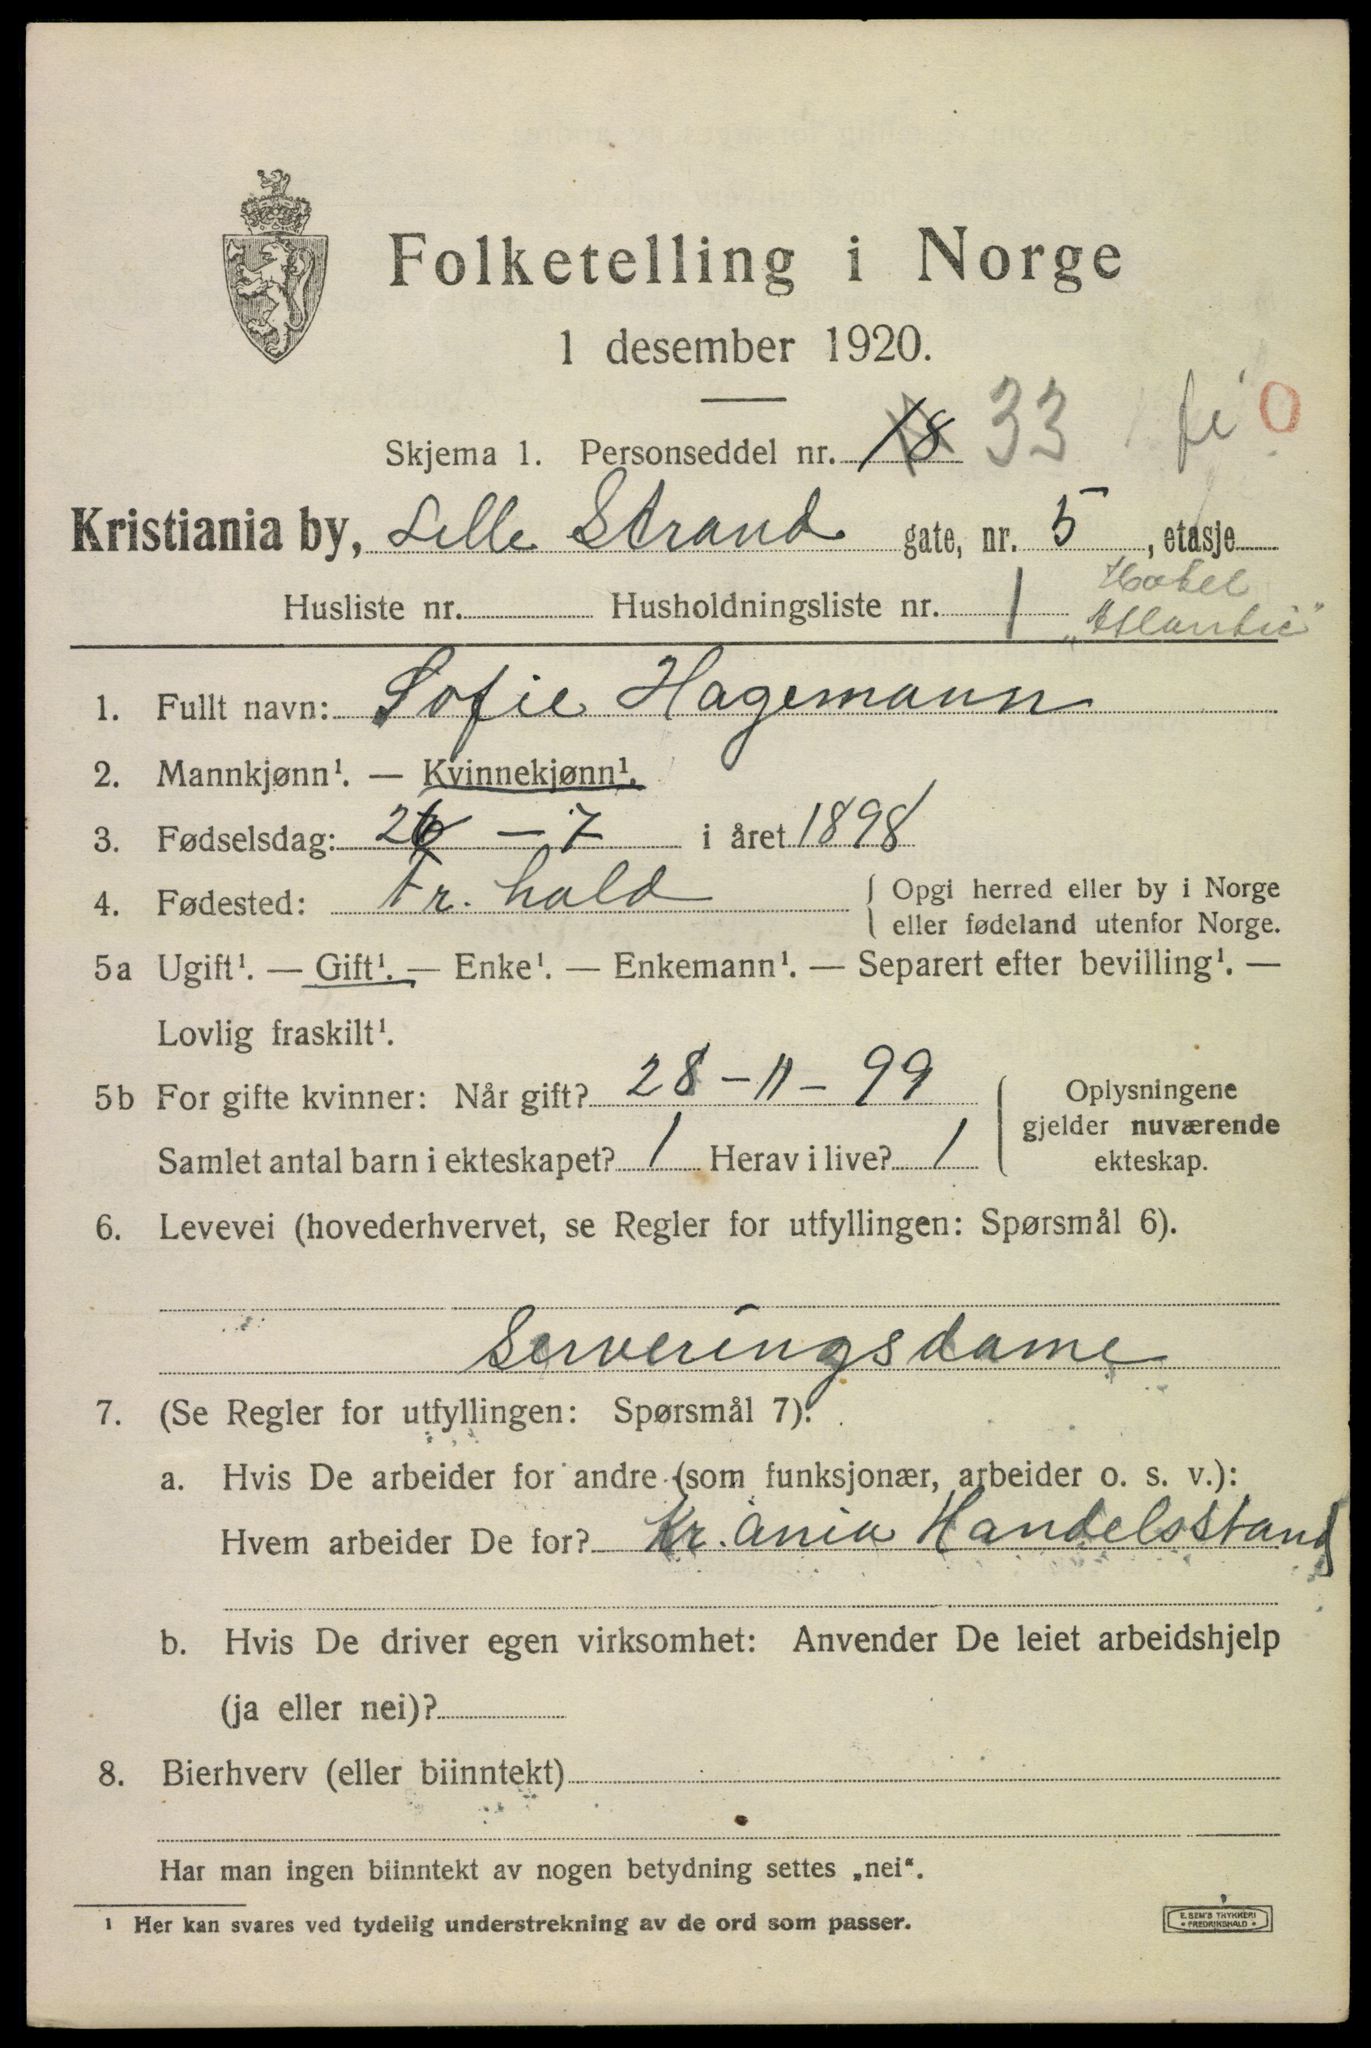 Folketelling i Norge
1 desember 1920.
Skjema 1. Personseddel nr. 18 33
Kristiania by, Lille Strand gate, nr. 5, etasje
Hotel
Husliste nr. Husholdningsliste nr. 1 „Atlantic"
1. Fullt navn: Sofie Hagemann
2. Mannkjønn¹. — Kvinnekjønn¹.
3. Fødselsdag: 26 - 7 i året 1898
4. Fødested: Fr. hald { Opgi herred eller by i Norge
eller fødeland utenfor Norge.
5a Ugift¹. — Gift¹. — Enke¹. — Enkemann¹. — Separert efter bevilling¹. —
Lovlig fraskilt¹.
5b For gifte kvinner: Når gift? 28 - 11 - 99 { Oplysningene
gjelder nuværende
Samlet antal barn i ekteskapet? 1 Herav i live? 1 ekteskap.
6. Levevei (hovederhvervet, se Regler for utfyllingen: Spørsmål 6).
Serveringsdame
7. (Se Regler for utfyllingen: Spørsmål 7):
a. Hvis De arbeider for andre (som funksjonær, arbeider o. s. v.):
Hvem arbeider De for? Kr. ania Handelsstand
b. Hvis De driver egen virksomhet: Anvender De leiet arbeidshjelp
(ja eller nei)?
8. Bierhverv (eller biinntekt)
Har man ingen biinntekt av nogen betydning settes „nei".
¹ Her kan svares ved tydelig understrekning av de ord som passer.
E. SEM'S TRYKKERI
• FREDRIKSHALD •